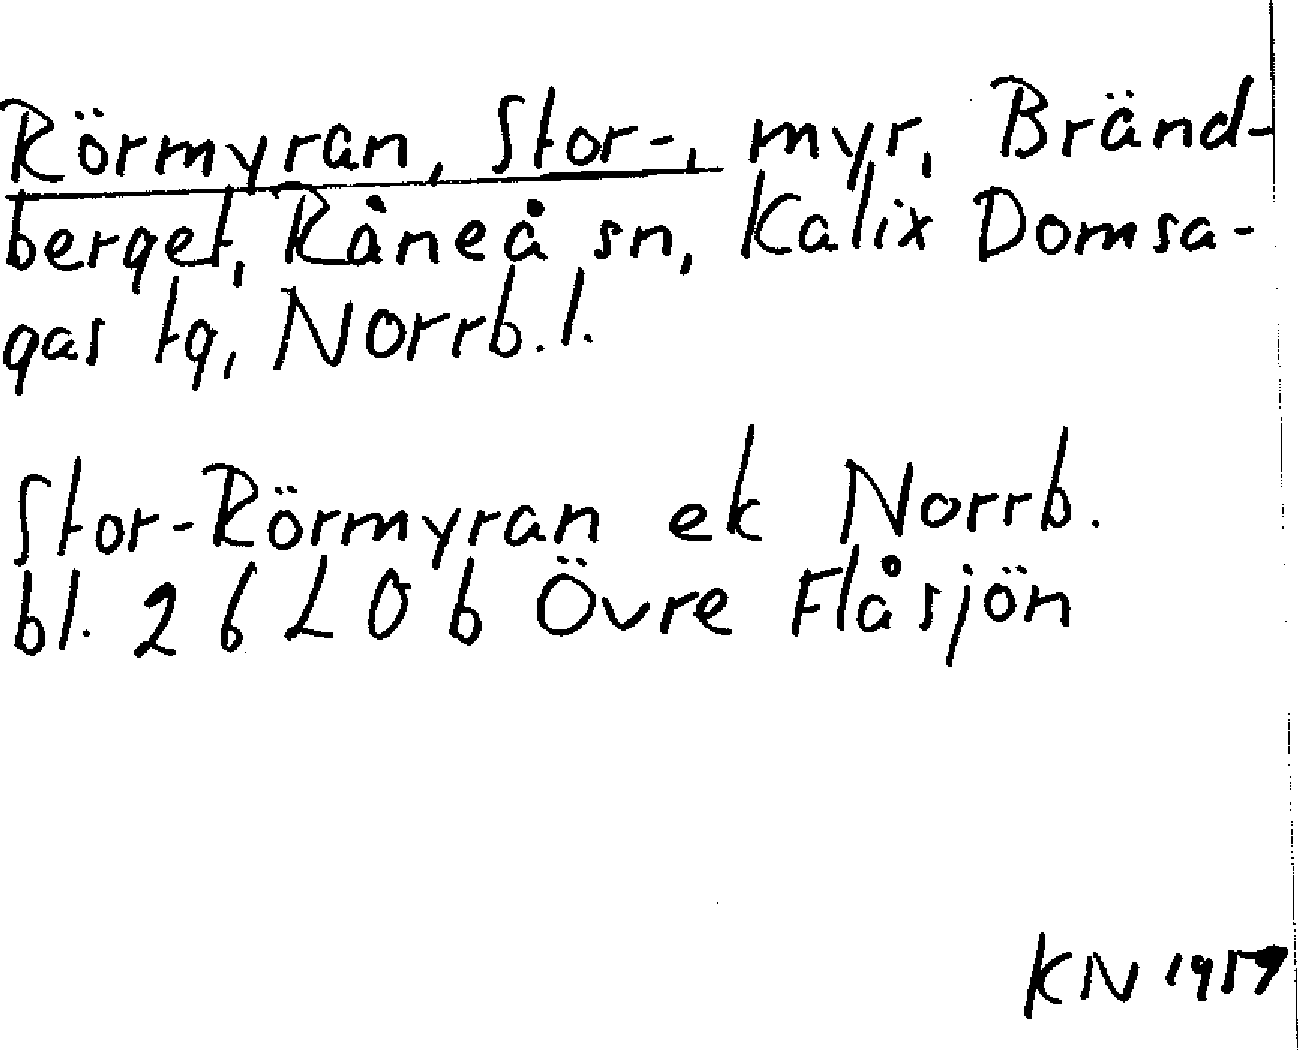 Rörmyran, Stor-, myr, Bränd-
berget, Råneå sn, Kalix Domsa-
gas tg, Norrb. l.
Stor-Römyran ek Norrb.
bl. 26 L 0 b Övre Flåsjön
KN